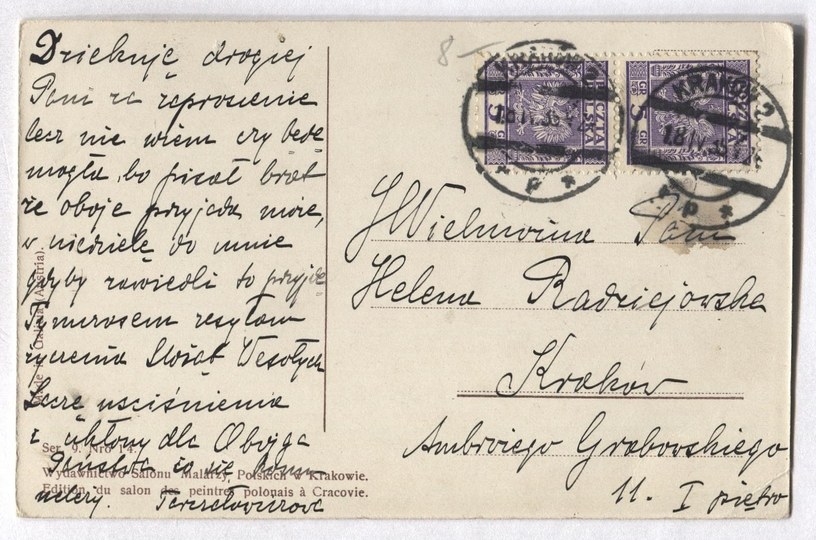 Dziękuję drogiej
Pani za zaproszenie
lecz nie wiem czy będę
mogła, bo pisał brat
że oboje przyjadą może,
w niedzielę do mnie
gdyby zawiedli to przyjdę
Tymczasem zesyłam
życzenia Świąt Wesołych
uściśnienia
i ukłony dla Obojga
Państwa co się
8
KRAKÓW 2
18.IV.35
5 GR
POCZTA POLSKA
KRAKÓW 2
18.IV.35
5 GR
POCZTA POLSKA
JWielmożna Pani
Helena Radziejowska
Kraków
Ambrożego Grabowskiego
11. I piętro
Made in Galicia (Austria)
Ser. 9. Nro 14.
Wydawnictwo Salonu Malarzy Polskich w Krakowie.
Edition du salon des peintres polonais à Cracovie.